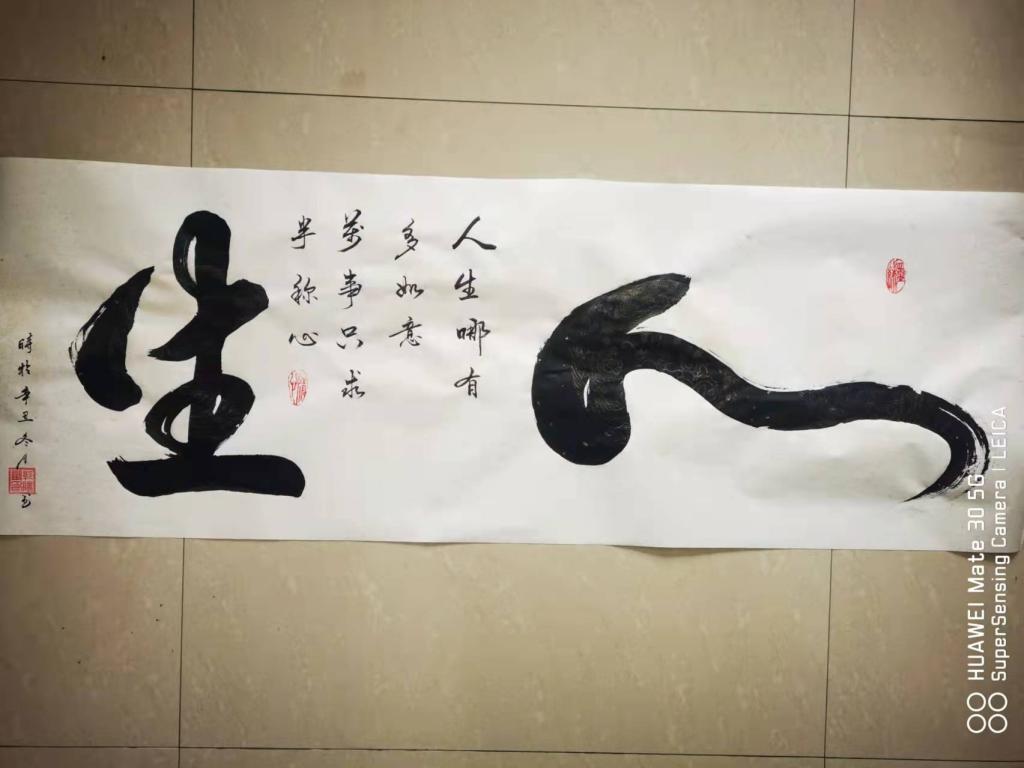 人生
人生哪有
多如意
萬事只求
半称心
時於辛丑冬月
HUAWEI Mate 30 5G
SuperSensing Camera | LEICA